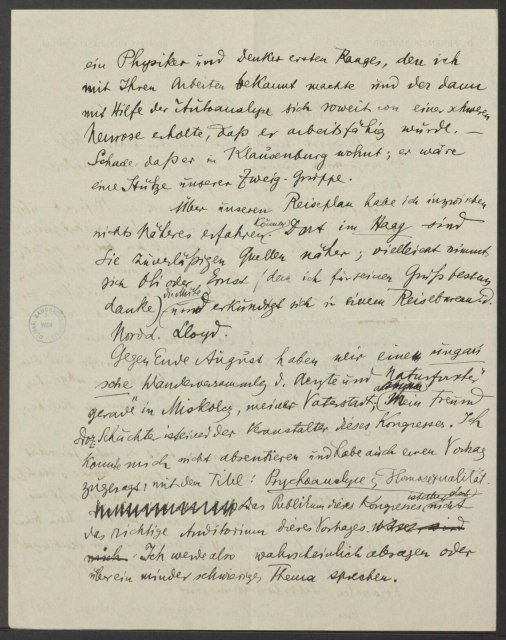 ein Physiker und Denker ersten Ranges, den ich
mit Ihren Arbeiten bekannt machte und der dann
mit Hilfe der Autoanalyse sich soweit von einer schweren
Neurose erholte, daß er arbeitsfähig wurde. —
Schade daß er in Klausenburg wohnt; er wäre
eine Stütze unserer Zweig-Gruppe.
Über unseren Reiseplan habe ich inzwischen
nichts Näheres erfahren können. Dort im Haag sind
Sie zuverläßigen Quellen näher; vielleicht nimmt
sich Oli oder Ernst (dem ich für seinen Gruß bestens
danke) die Mühe und erkundigt sich in einem Reisebureau d.
Nordd. Lloyd.
Gegen Ende August haben wir eine ungari
sche Wanderversammlg d. Aerzte und Naturforscher
gerade in Miskolcz, meiner Vaterstadt. Mein Freund
Schächter ist einer der Veranstalter dieses Kongresses. Ich
konnte mich nicht absentieren und habe auch einen Vortrag
zugesagt, mit dem Titel: Psychoanalyse & Homosexualität.
Das Publikum dieses Kongresses ist aber nicht
das richtige Auditorium dieses Vortrages.
Ich werde also wahrscheinlich absagen oder
über ein minder schwieriges Thema sprechen.